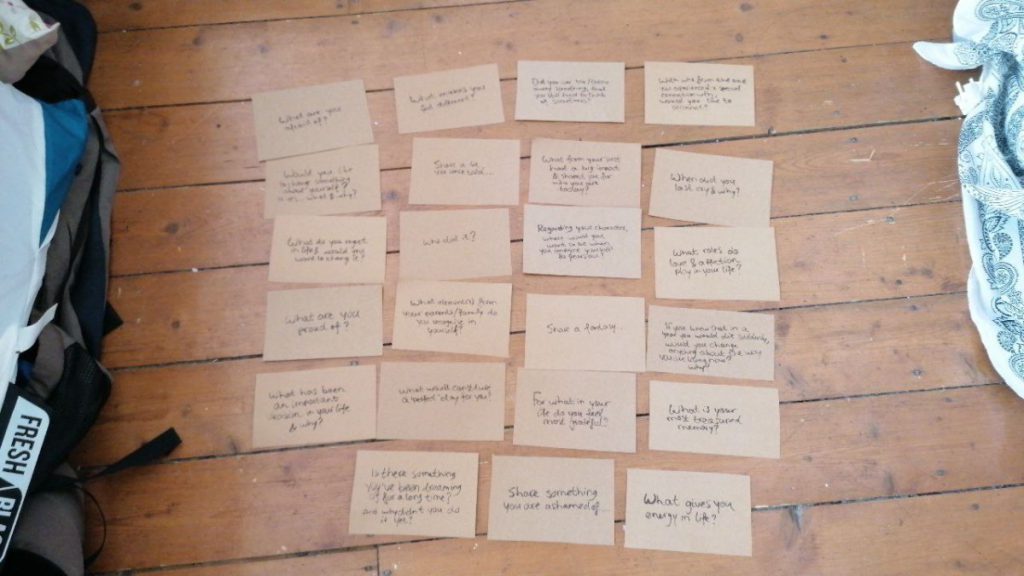 What are you
afraid of?
What makes you
feel different?
Did you use to/
away something, that
you still have to think
of sometimes?
With who from the
you experienced a special
connection with,
would you like to
Would you like
to change something
about yourself?
If yes... what & why?
Share a lie
you once told...
What from your past
had a big impact
& shaped you for
who you are
today?
When did you
last cry & why?
What do you regret
in life & would you
want to change it?
Who did it?
Regarding your character,
where would you
want to be when
you imagine yourself
10 years
What roles do
love & affection
play in your life?
What are you
proud of?
What element(s) from
your parents/family do
you recognise in
yourself?
Share a fantasy...
If you knew that in a
year you would die suddenly,
would you change
anything about the way
you live now?
Why?
What has been
an important
lesson in your life
& why?
What would constitute
a 'perfect' day for you?
For what in your
life do you feel
most grateful?
What is your
most treasured
memory?
Is there something
you've been dreaming
of for a long time?
and why didn't you do
it yet?
Share something
you are ashamed of...
What gives you
energy in life?
FRESH